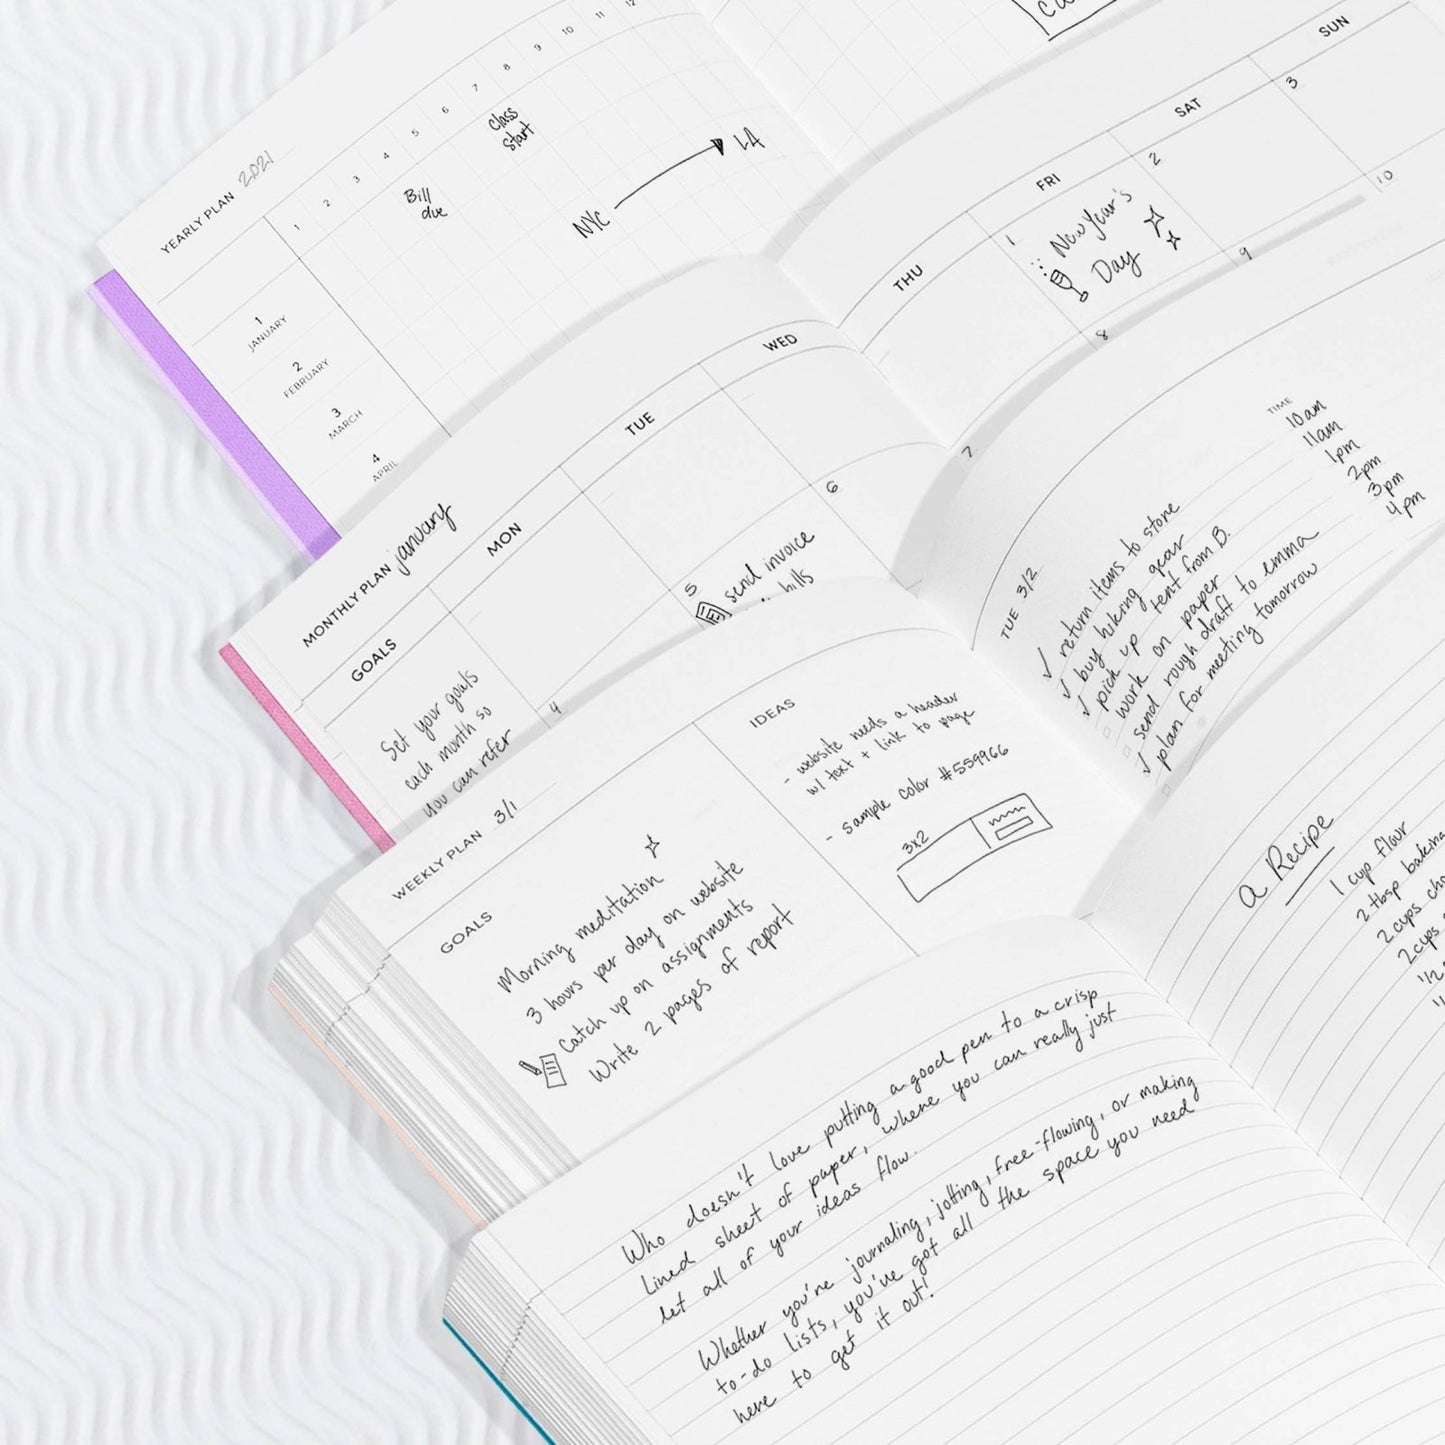 YEARLY PLAN 2021
1 2 3 4 5 6 7 8 9 10 11 12
Class
start
Bill
due
NYC
LA
1
JANUARY
2
FEBRUARY
3
MARCH
4
APRIL
MONTHLY PLAN january
GOALS
MON
TUE
WED
THU
FRI
SAT
SUN
1
2
3
New Year's
Day
4
5
6
7
8
9
10
send invoice
bills
Set your goals
each month so
you can refer
WEEKLY PLAN 3/1
GOALS
Morning meditation
3 hours per day on website
Catch up on assignments
Write 2 pages of report
IDEAS
- website needs a header
w/ text + link to page
- sample color #559966
3x2
TUE 3/2
TIME
✓ return items to store
10am
✓ buy hiking gear
11am
✓ pick up tent from B.
1pm
work on paper
2pm
send rough draft to emma
3pm
✓ plan for meeting tomorrow
4pm
Who doesn't love putting a good pen to a crisp
lined sheet of paper, where you can really just
let all of your ideas flow.
Whether you're journaling, jotting, free-flowing, or making
to-do lists, you've got all the space you need
here to get it out!
a Recipe
1 cup flour
2 tbsp
2 cups
2 cups
1/2